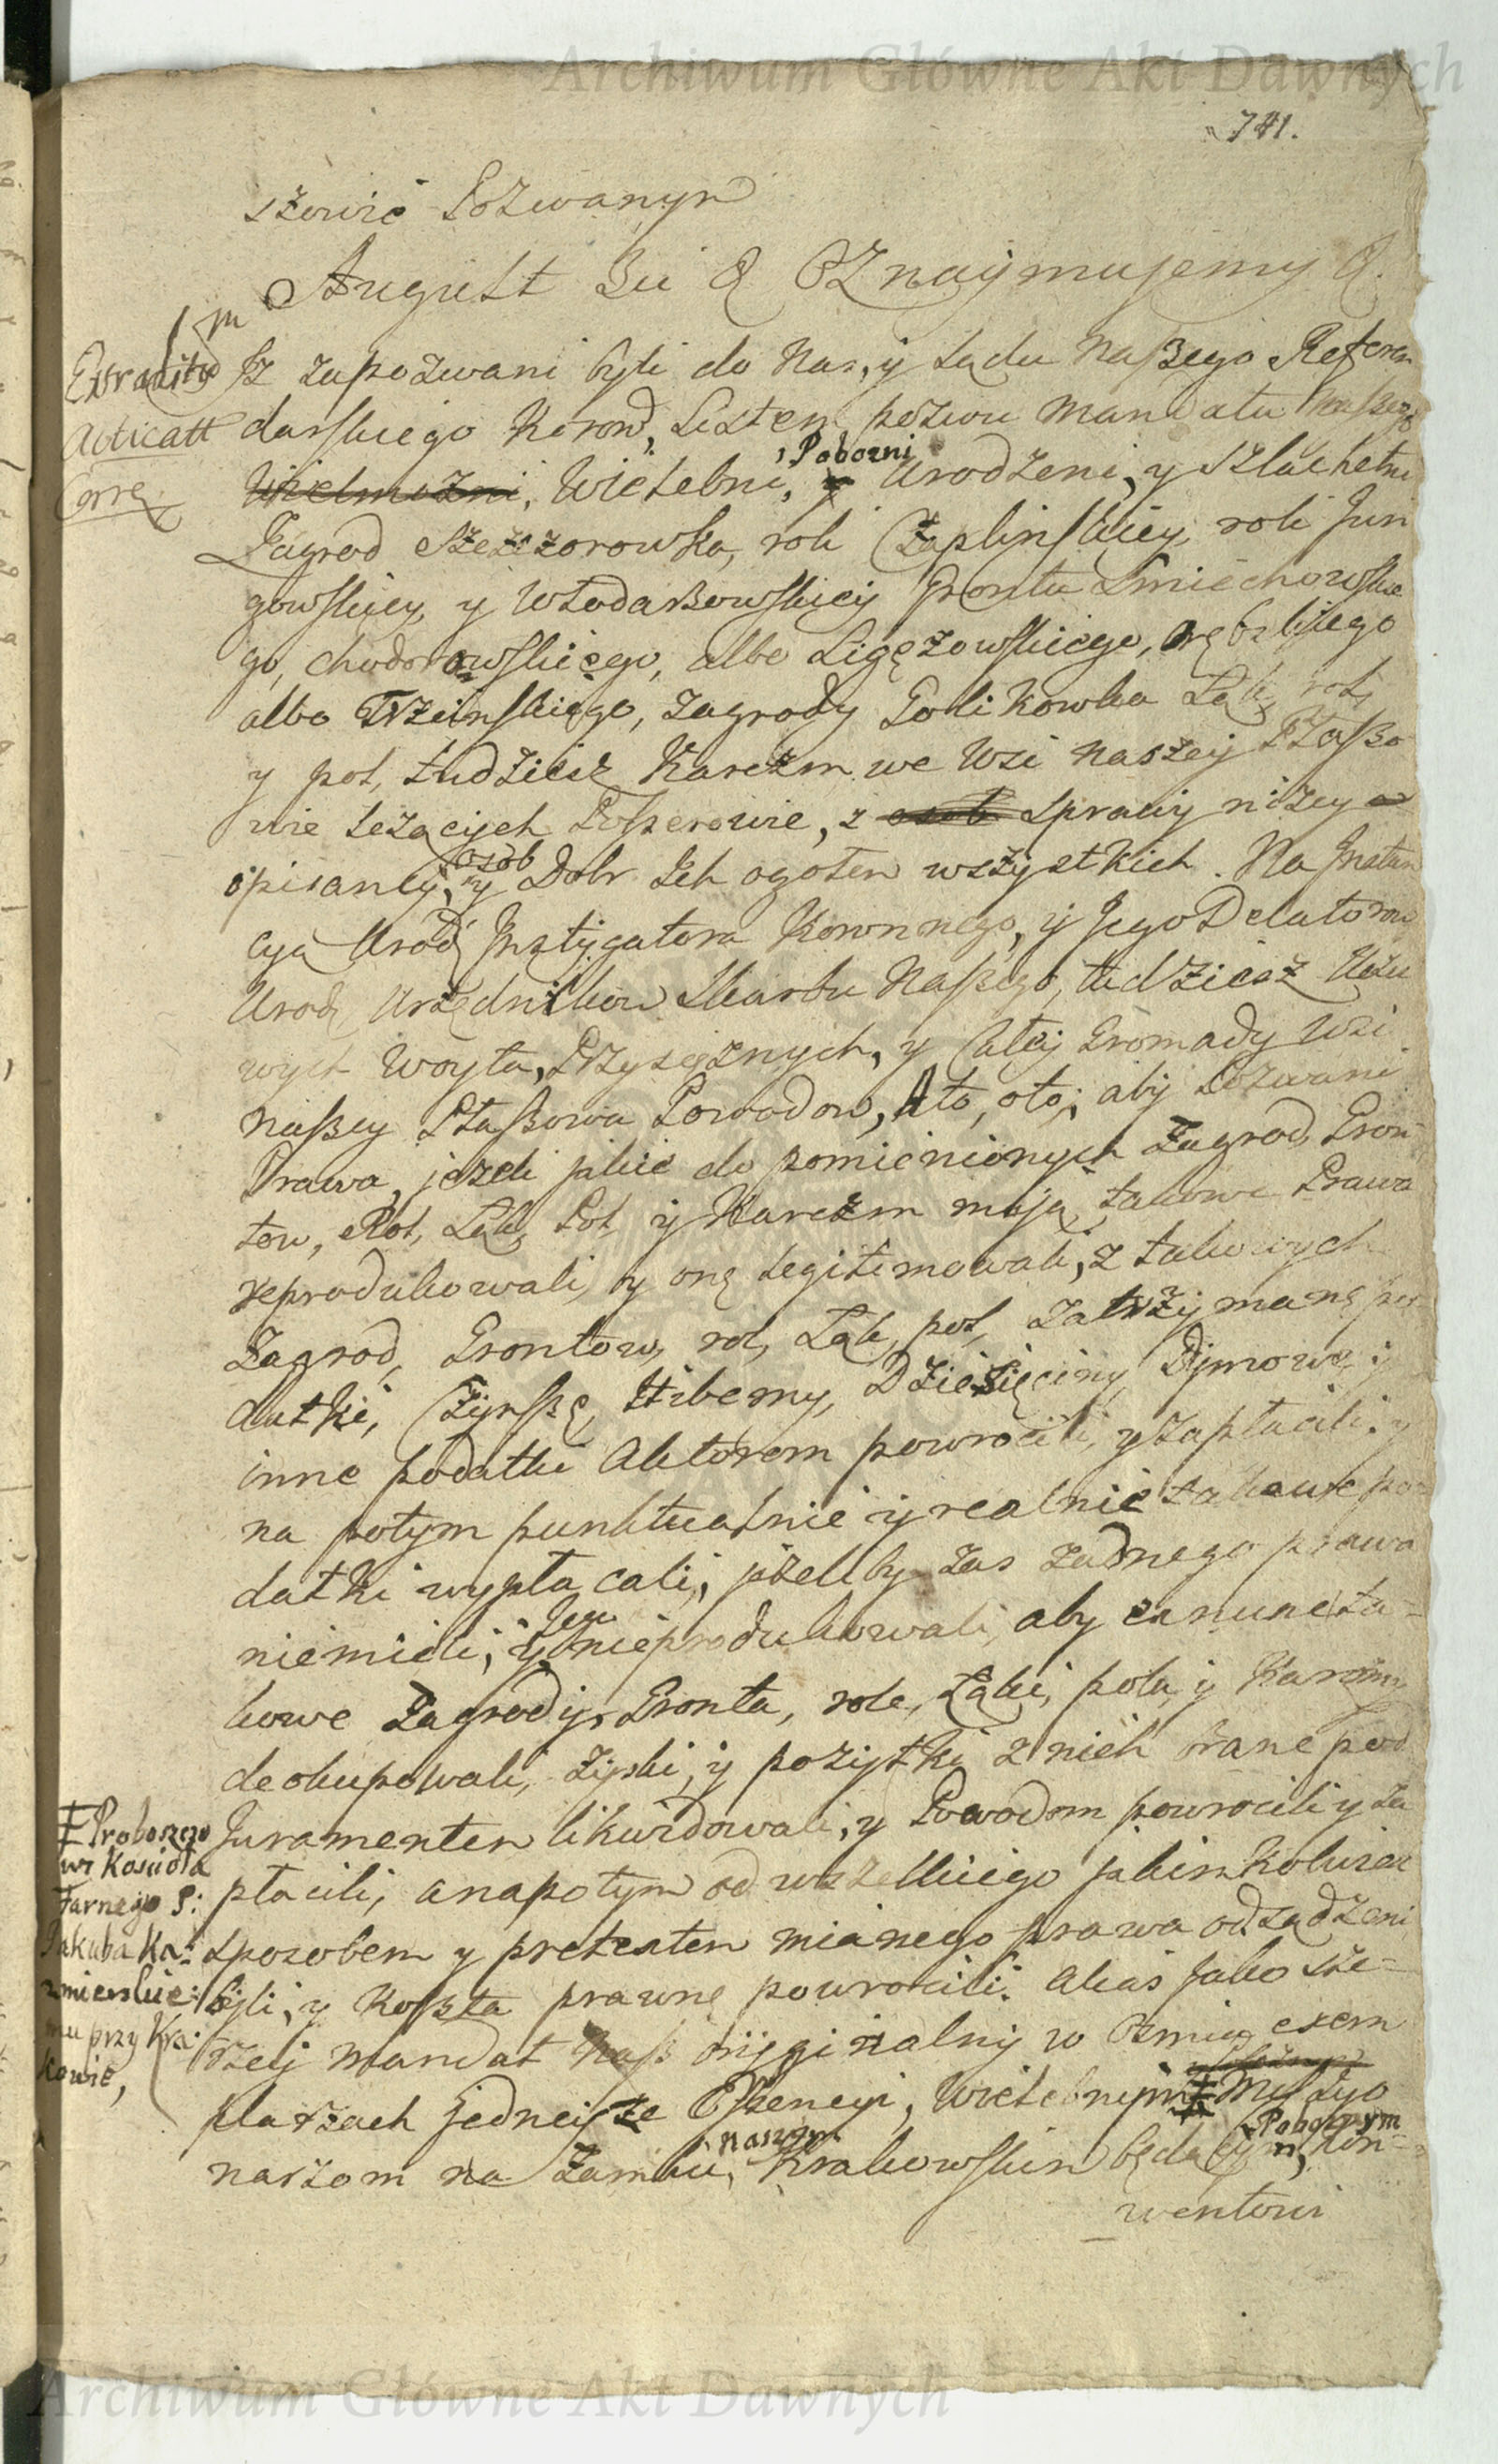 Archiwum Główne Akt Dawnych
741.
szowie Pozwanym
August III & Oznaymujemy &.
Extraditum
Acticatt
Corre
Jż zapozwani byli do Nas, y Sądu naßego Referen
darskiego Koronn, Listem pozwu mandatu naßego
Wielmożni, Wielebni, Pobozni y Urodzeni, y Szlachetni
Zagrod Szczezorowka, roli Czaplinskiey, roli Jun
gowskiey, y Włodaßowskiey Grontu Smiechowskie
go, Chodorowskiego, albo Ligęzowskiego, Zrębskiego
albo Trzcinskiego, Zagrody Polikowka Łąk, roli
y pol, tudziesz Karczm we Wsi naszey Staßo
wie leżących Possesorowie, z osob Sprawy niżey
opisaney, osob y Dobr Ich ogołem wszystkich. Na Jnstan
cyą Urodz Jnstygatora Koronnego, y Jego Delatorow
Urodz Urzędnikow Skarbu Naßego, tudziesz Uczci
wych Woyta, Przysięznych, y Całey Gromady Wsi
naßey Staßowa Powodow, Ato, oto, aby Pozwani
Prawa, jezeli jakie do pomienionych Zagrod, Gron
tow, Rol, Łąk, Pol y Karczm mają, takowe Prawa
reprodukowali, y onę legitimowali, z takowych
Zagrod, Grontow, rol, Łąk, pol, zatrzymanę po
datki, Czynszę, Hiberny, Dziesięciny, Dymowe, y
inne podatki Aktorom powrocili, y zapłacili, y
na potym punktualnie y realnie takowe po
datki wypłacali, jeżeliby zas zadnego prawa
niemieli, y Jego nieprodukowali, aby exnunc ta-
kowe Zagrody, Gronta, role, Łąki, pola, y Karczmy
deokupowali, zyski, y pozytki z nich brane pod
Juramentem likwidowali, y Powodom powrocili y za
płacili, anapotym od wszelkiego jakimkolwiek
sposobem y pretextem mianego prawa odsądzeni
byli, y koßta prawne powrocili. Aliaś jako sze-
rzey mandat naß oryginalny w Osmiu exem
plarzach jedneyże Essencyi, Wielebnym Missyo
narzom na Zamku naszym Krakowskim będącym, Pobożnym Kon-
wentowi
Ŧ Proboszczo
wi Koscioła
Farnego S:
Jakuba Ka:
zmierskie:
mu przy Kra:
kowie,
Archiwum Główne Akt Dawnych